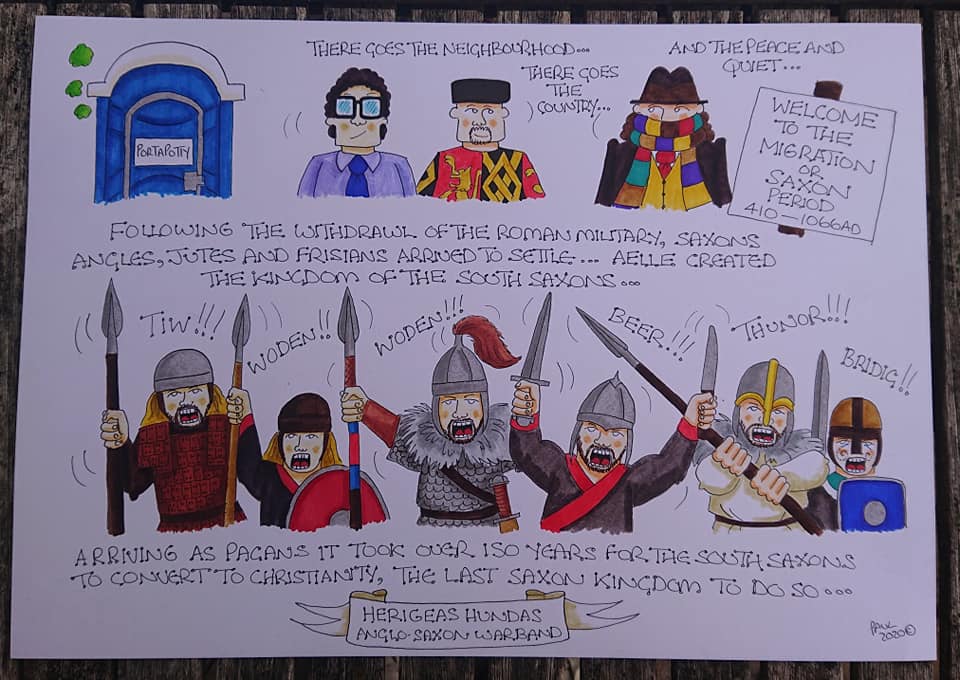 THERE GOES THE NEIGHBOURHOOD...
AND THE PEACE AND
QUIET...
THERE GOES
THE
COUNTRY...
PORTAPOTTY
WELCOME
TO THE
MIGRATION
OR
SAXON
PERIOD
410-1066AD
FOLLOWING THE WITHDRAWL OF THE ROMAN MILITARY, SAXONS
ANGLES, JUTES AND FRISIANS ARRIVED TO SETTLE... AELLE CREATED
THE KINGDOM OF THE SOUTH SAXONS...
TIW!!!
WODEN!!
WODEN!!!
BEER!!!
THUNOR!!!
BRIDIG!!
ARRIVING AS PAGANS IT TOOK OVER 150 YEARS FOR THE SOUTH SAXONS
TO CONVERT TO CHRISTIANITY, THE LAST SAXON KINGDOM TO DO SO...
HERIGEAS HUNDAS
ANGLO-SAXON WARBAND
PAUL
2020©